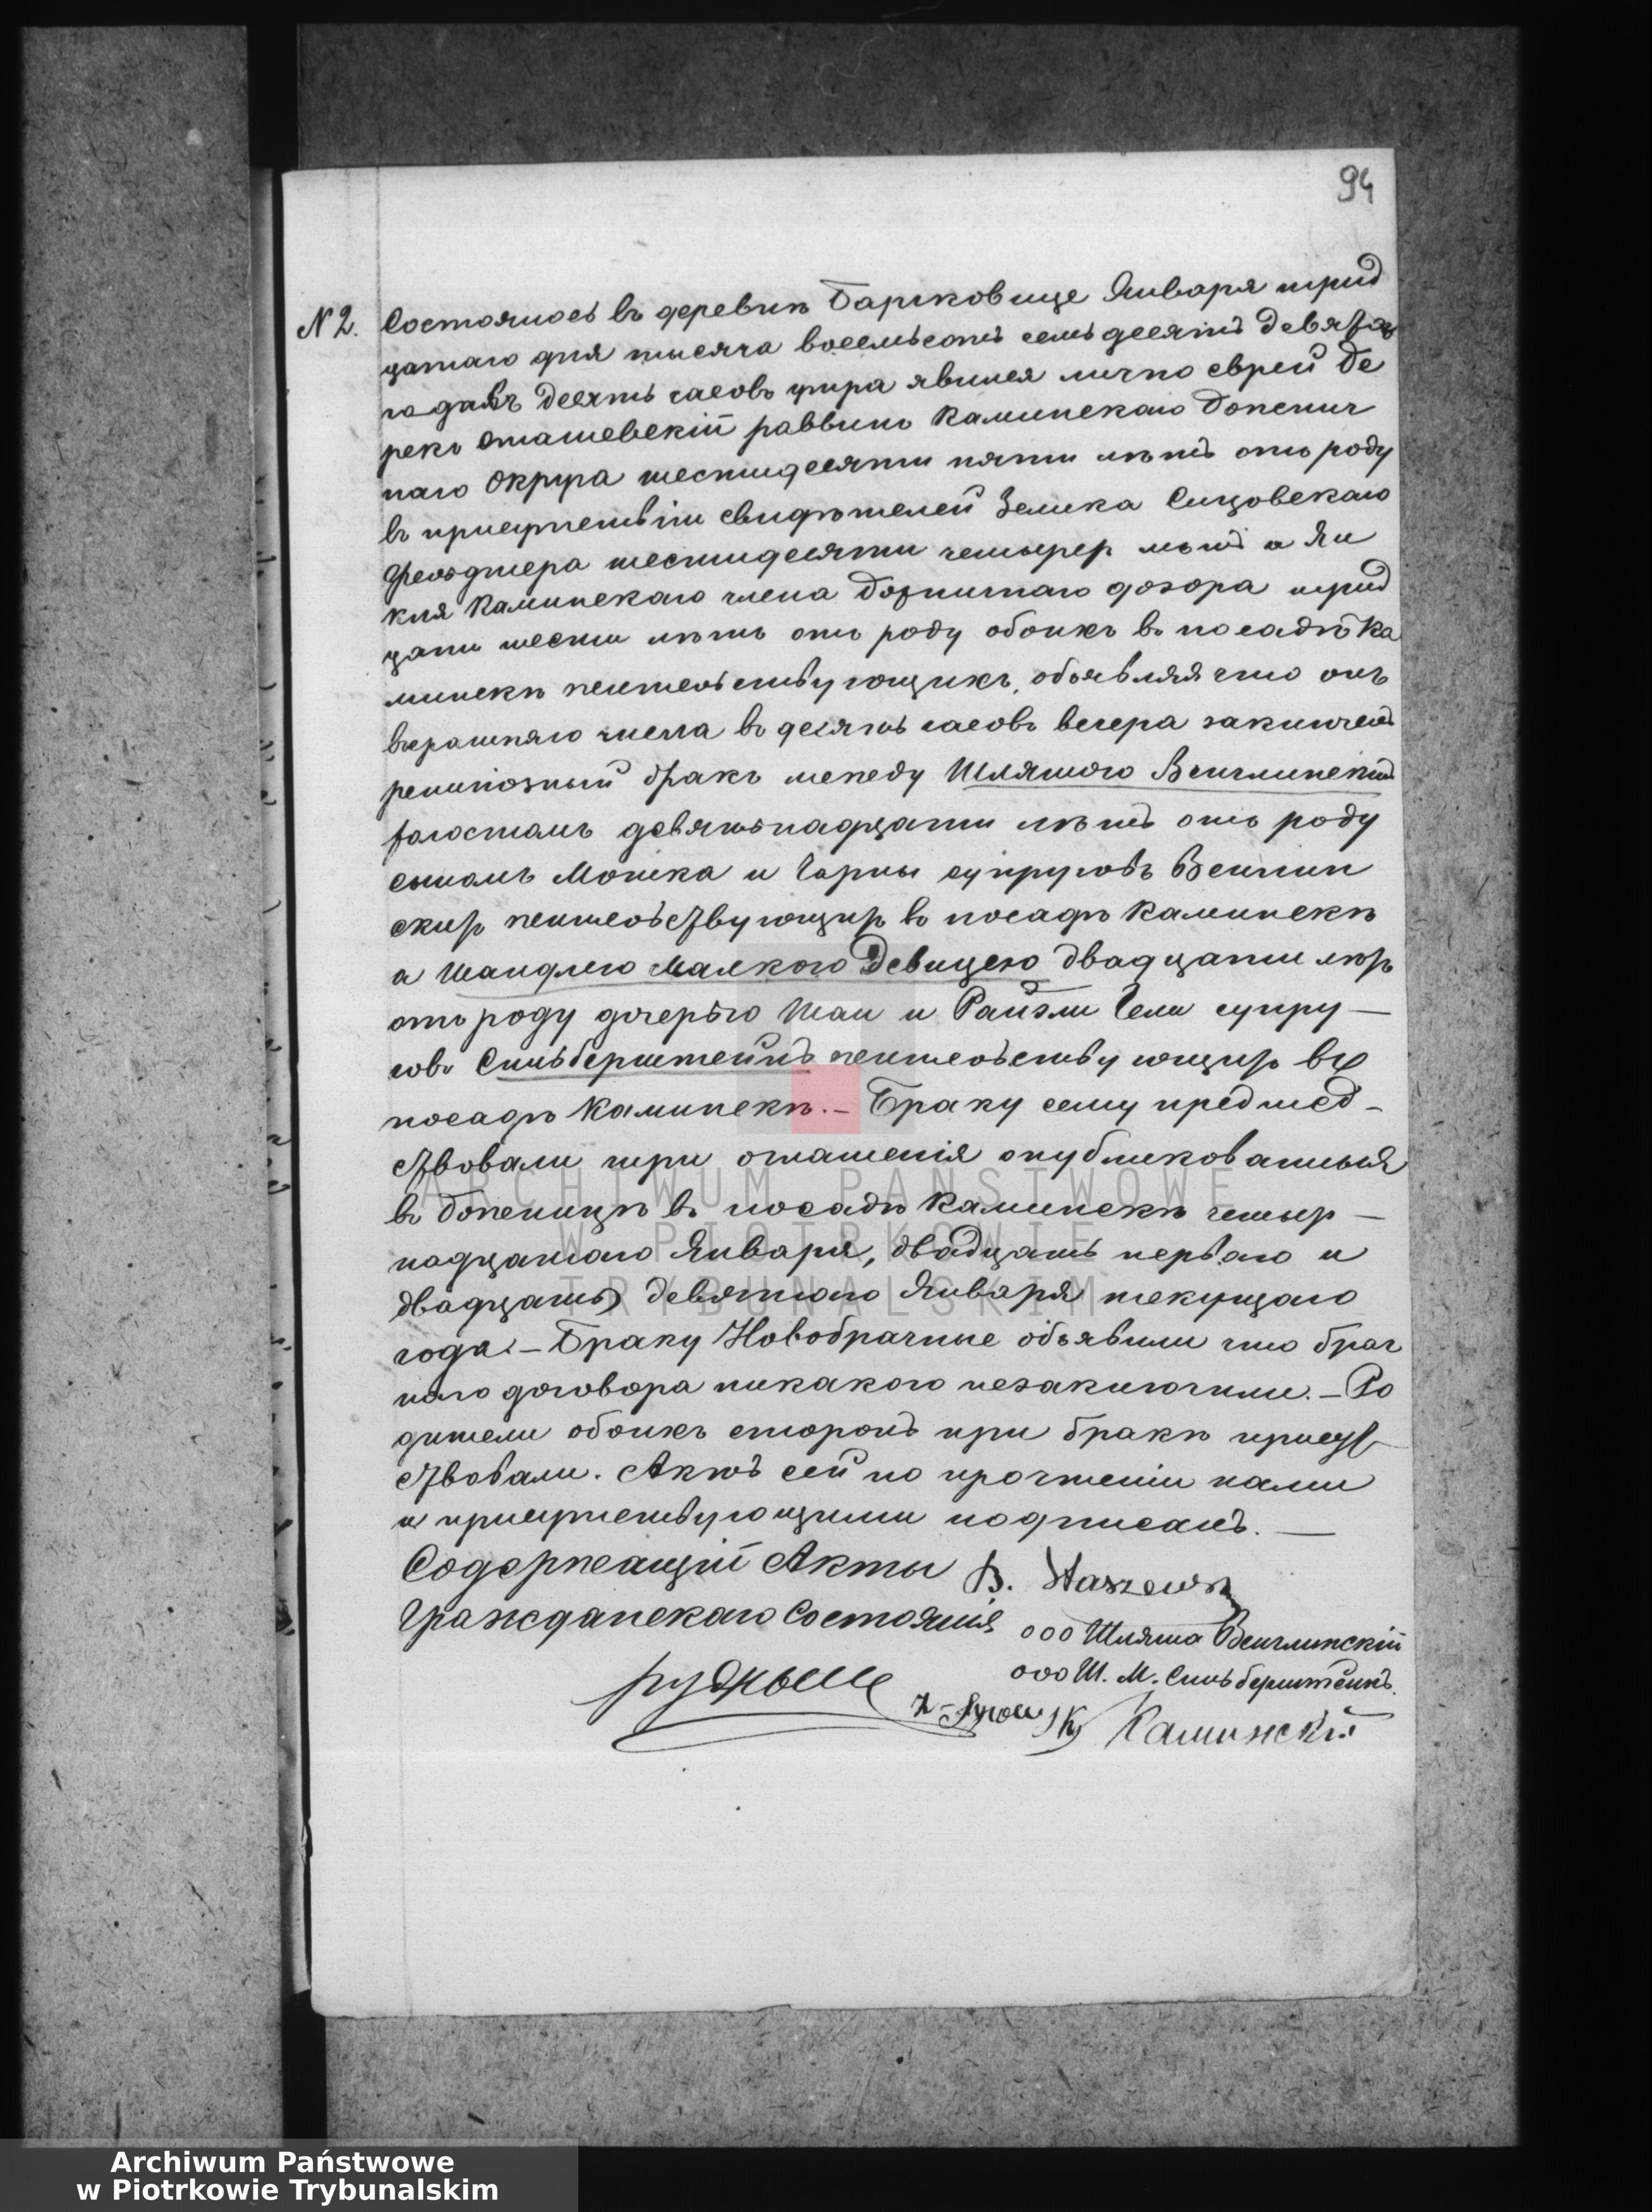 94
N 2. Состоялось въ деревнѣ Барковице Января трид
цатаго дня тысяча восемьсотъ семьдесятъ девятаго
года въ десять часовъ утра явился лично еврей Бе
рекъ Сташевскій раввинъ Каминскаго Божнич
наго Округа шестидесяти пяти лѣтъ отъ роду
въ присутствіи свидѣтелей Зелика Сицовскаго
Фельдшера шестидесяти четырехъ лѣтъ и Ян
кля Каминскаго члена Божничнаго дозора трид
цати шести лѣтъ отъ роду обоихъ въ посадѣ Ка
минскѣ жительствующихъ, объявляя что онъ
вчерашняго числа въ десять часовъ вечера заключилъ
религіозный бракъ между Шлямою Венглинскій
холостомъ девятьнадцати лѣтъ отъ роду
сыномъ Мошка и Чарны супруговъ Венглин
скихъ жительствующихъ въ посадѣ Каминскѣ
а Шандлею Малкою Девицею двадцати лѣтъ
отъ роду дочерью Шаи и Райзли Чели супру—
говъ Сильберштейнъ жительствующихъ въ
посадѣ Каминскѣ.— Браку сему предшед-
ствовали три оглашенія опубликованныя
въ Божницѣ въ посадѣ Каминскѣ четыр—
надцатаго Января, двадцать перваго и
двадцать девятаго Января текущаго
года.— Браку Новобрачные объявили что брач
наго договора никакого незаключили.— Ро
дители обоихъ сторонъ при бракѣ присут
ствовали. Актъ сей по прочтеніи нами
и присутствующими подписанъ.—
Содержащій Акты B. Staszewsk
Гражданскаго Состоянія ооо Шляма Венглинскій
ооо Ш. М. Сильберштейнъ.
Каминскій
ARCHIWUM PAŃSTWOWE
W PIOTRKOWIE
TRYBUNALSKIM
Archiwum Państwowe
w Piotrkowie Trybunalskim